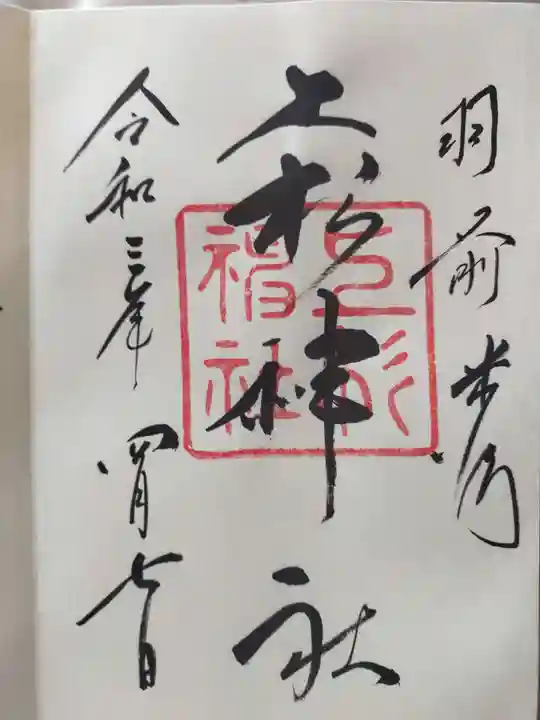 羽前米沢
上杉神社
上杉
神社
令和三年四月七日